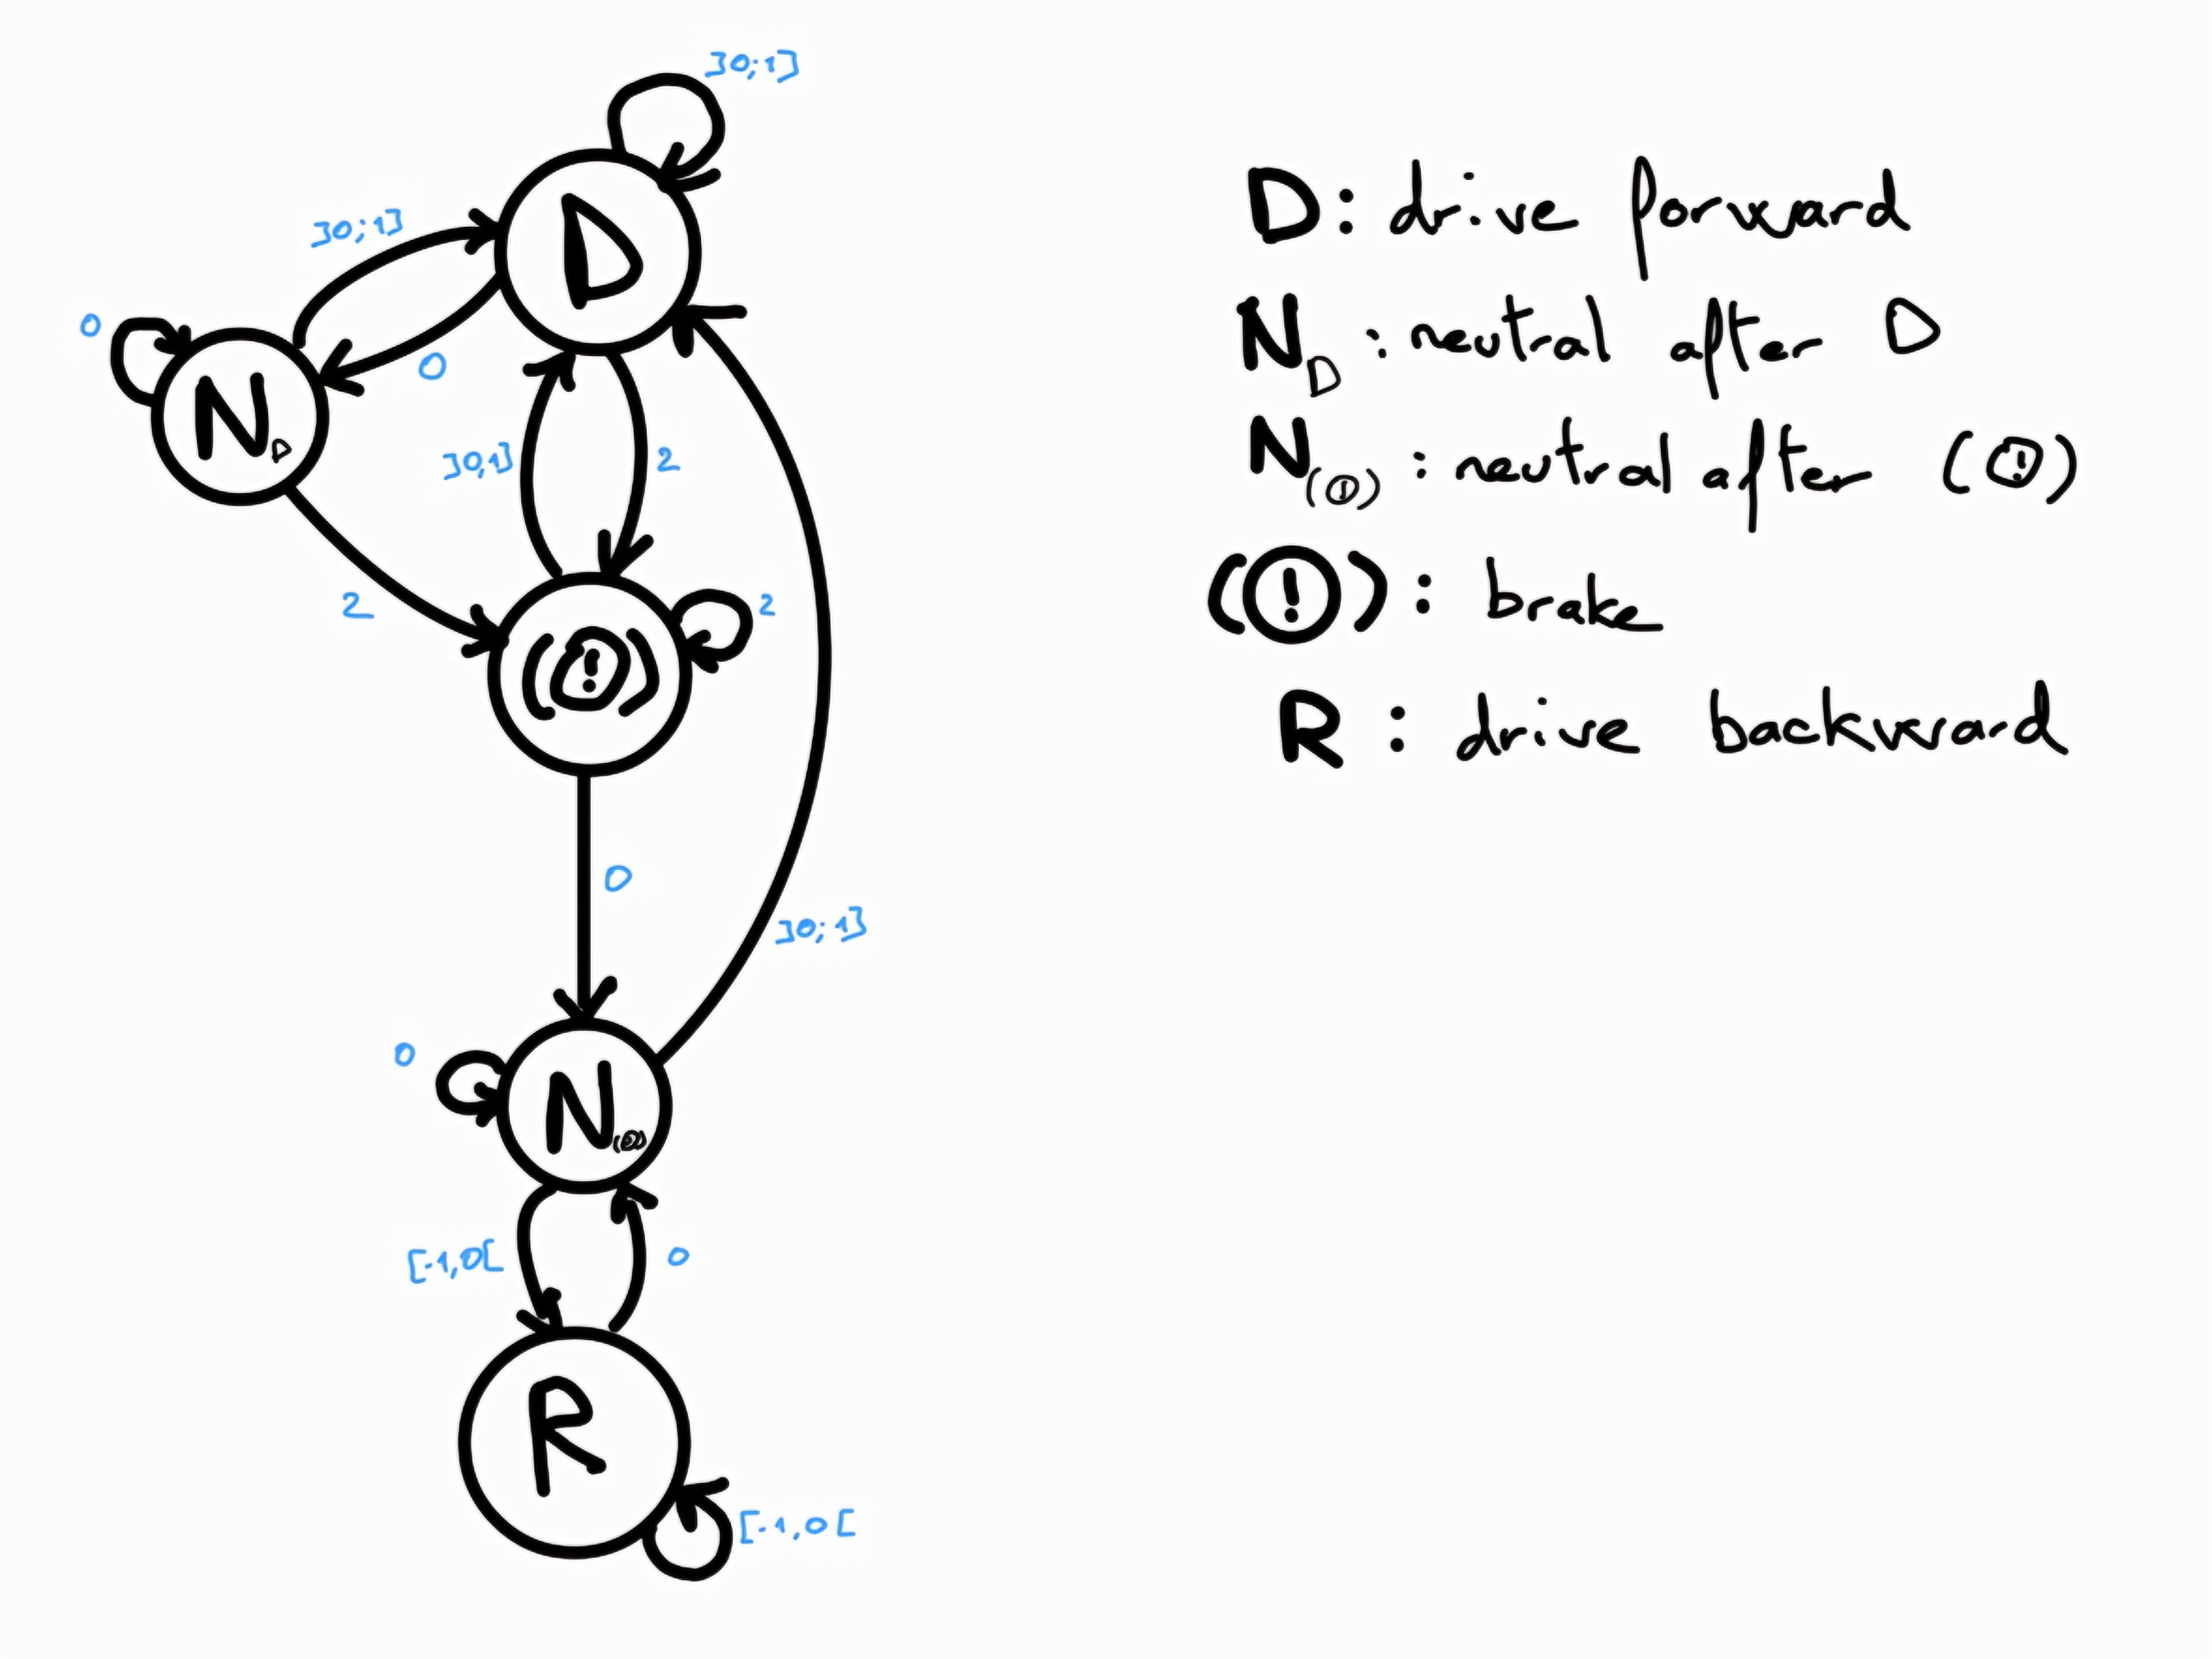 ]0;1]
D
]0;1]
0
0
N_D
]0,1]
2
2
2
(!)
0
]0;1]
0
N_(!)
[-1,0[
0
R
[-1,0[
D: drive forward
N_D: neutral after D
N_(!): neutral after (!)
(!): brake
R: drive backward